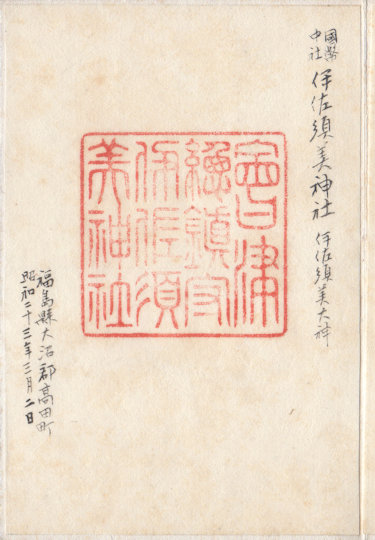 國幣
中社
伊佐須美神社 伊佐須美大神
會津
總鎮守
伊佐須
美神社
福島縣大沼郡高田町
昭和二十三年三月二日